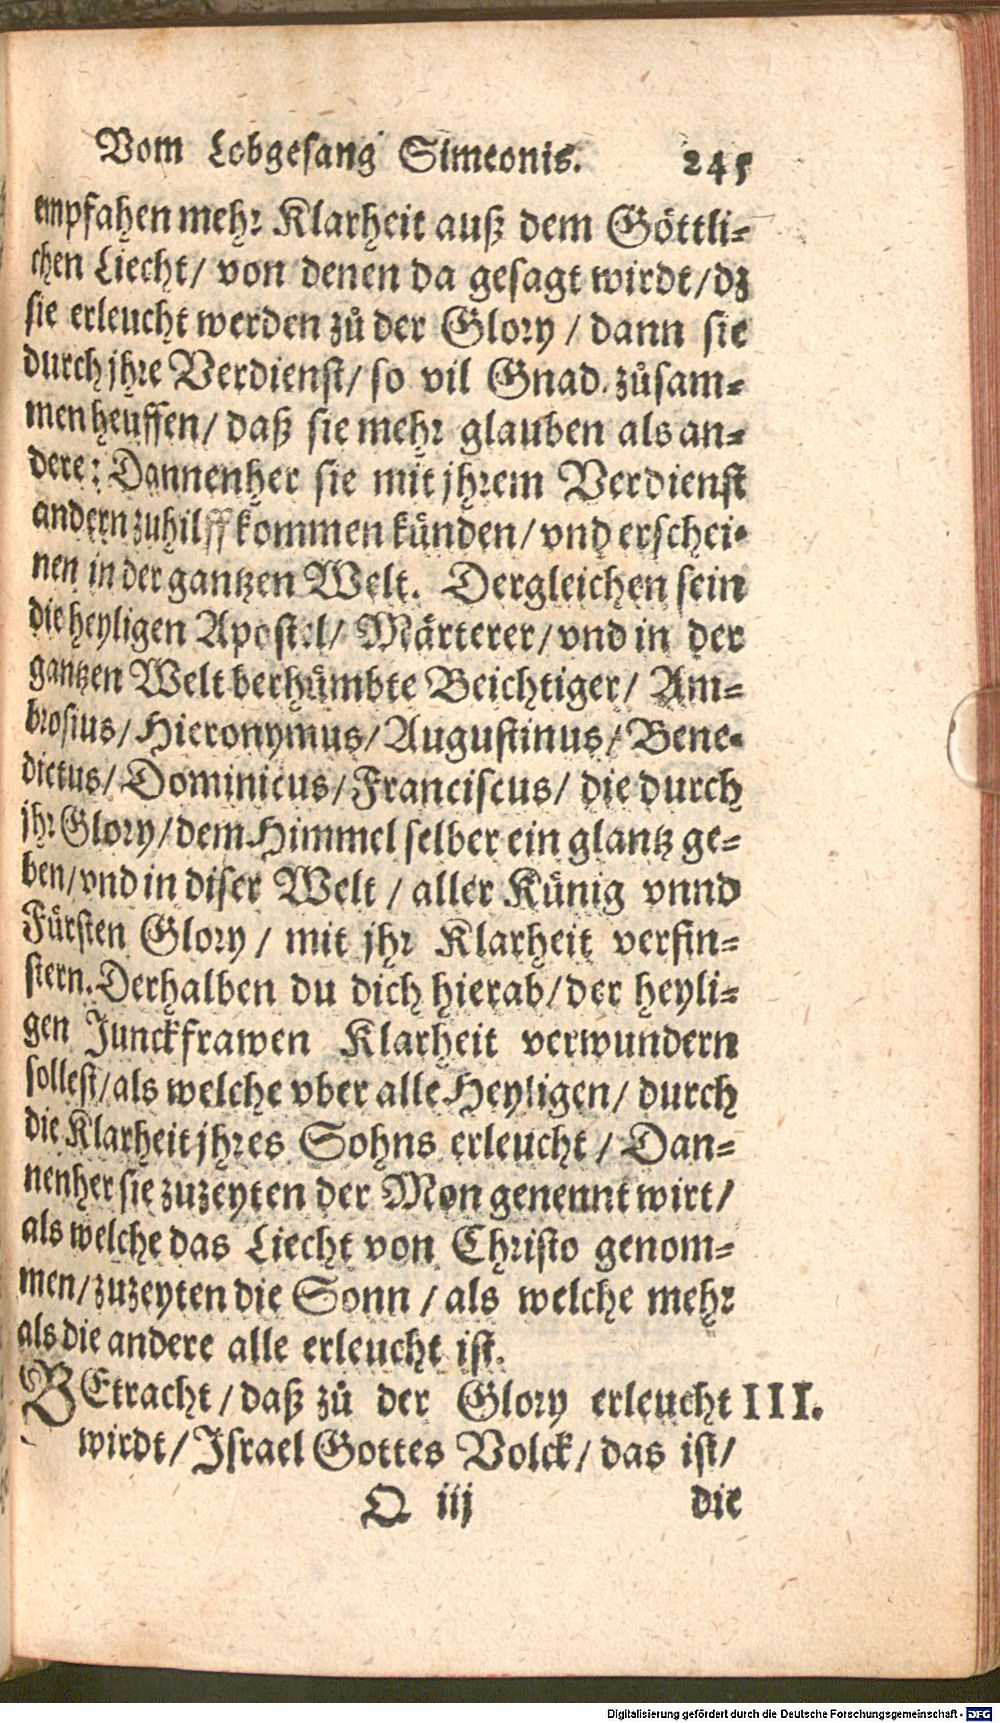 Vom Lobgesang Simeonis. 245
empfahen mehr Klarheit auß dem Göttli⸗
chen Liecht/ von denen da gesagt wirdt/ dz
sie erleucht werden zů der Glory / dann sie
durch jhre Verdienst/ so vil Gnad zůsam⸗
men heuffen/ daß sie mehr glauben als an⸗
dere: Dannenher sie mit jhrem Verdienst
andern zuhilff kommen künden/ vnd erschei⸗
nen in der gantzen Welt. Dergleichen sein
die heyligen Apostel/ Märterer/ vnd in der
gantzen Welt berhümbte Beichtiger/ Am⸗
brosius/ Hieronymus/ Augustinus/ Bene⸗
dictus/ Dominicus/ Franciscus/ die durch
jhr Glory/ dem Himmel selber ein glantz ge⸗
ben/ vnd in diser Welt / aller Künig vnnd
Fürsten Glory / mit jhr Klarheit verfin⸗
stern. Derhalben du dich hierab/ der heyli⸗
gen Junckfrawen Klarheit verwundern
sollest/ als welche vber alle Heyligen/ durch
die Klarheit jhres Sohns erleucht / Dan⸗
nenher sie zuzeyten der Mon genennt wirt/
als welche das Liecht von Christo genom⸗
men/ zuzeyten die Sonn / als welche mehr
als die andere alle erleucht ist.
BEtracht / daß zů der Glory erleucht III.
wirdt/ Israel Gottes Volck/ das ist/
Q iij die
Digitalisierung gefördert durch die Deutsche Forschungsgemeinschaft - DFG